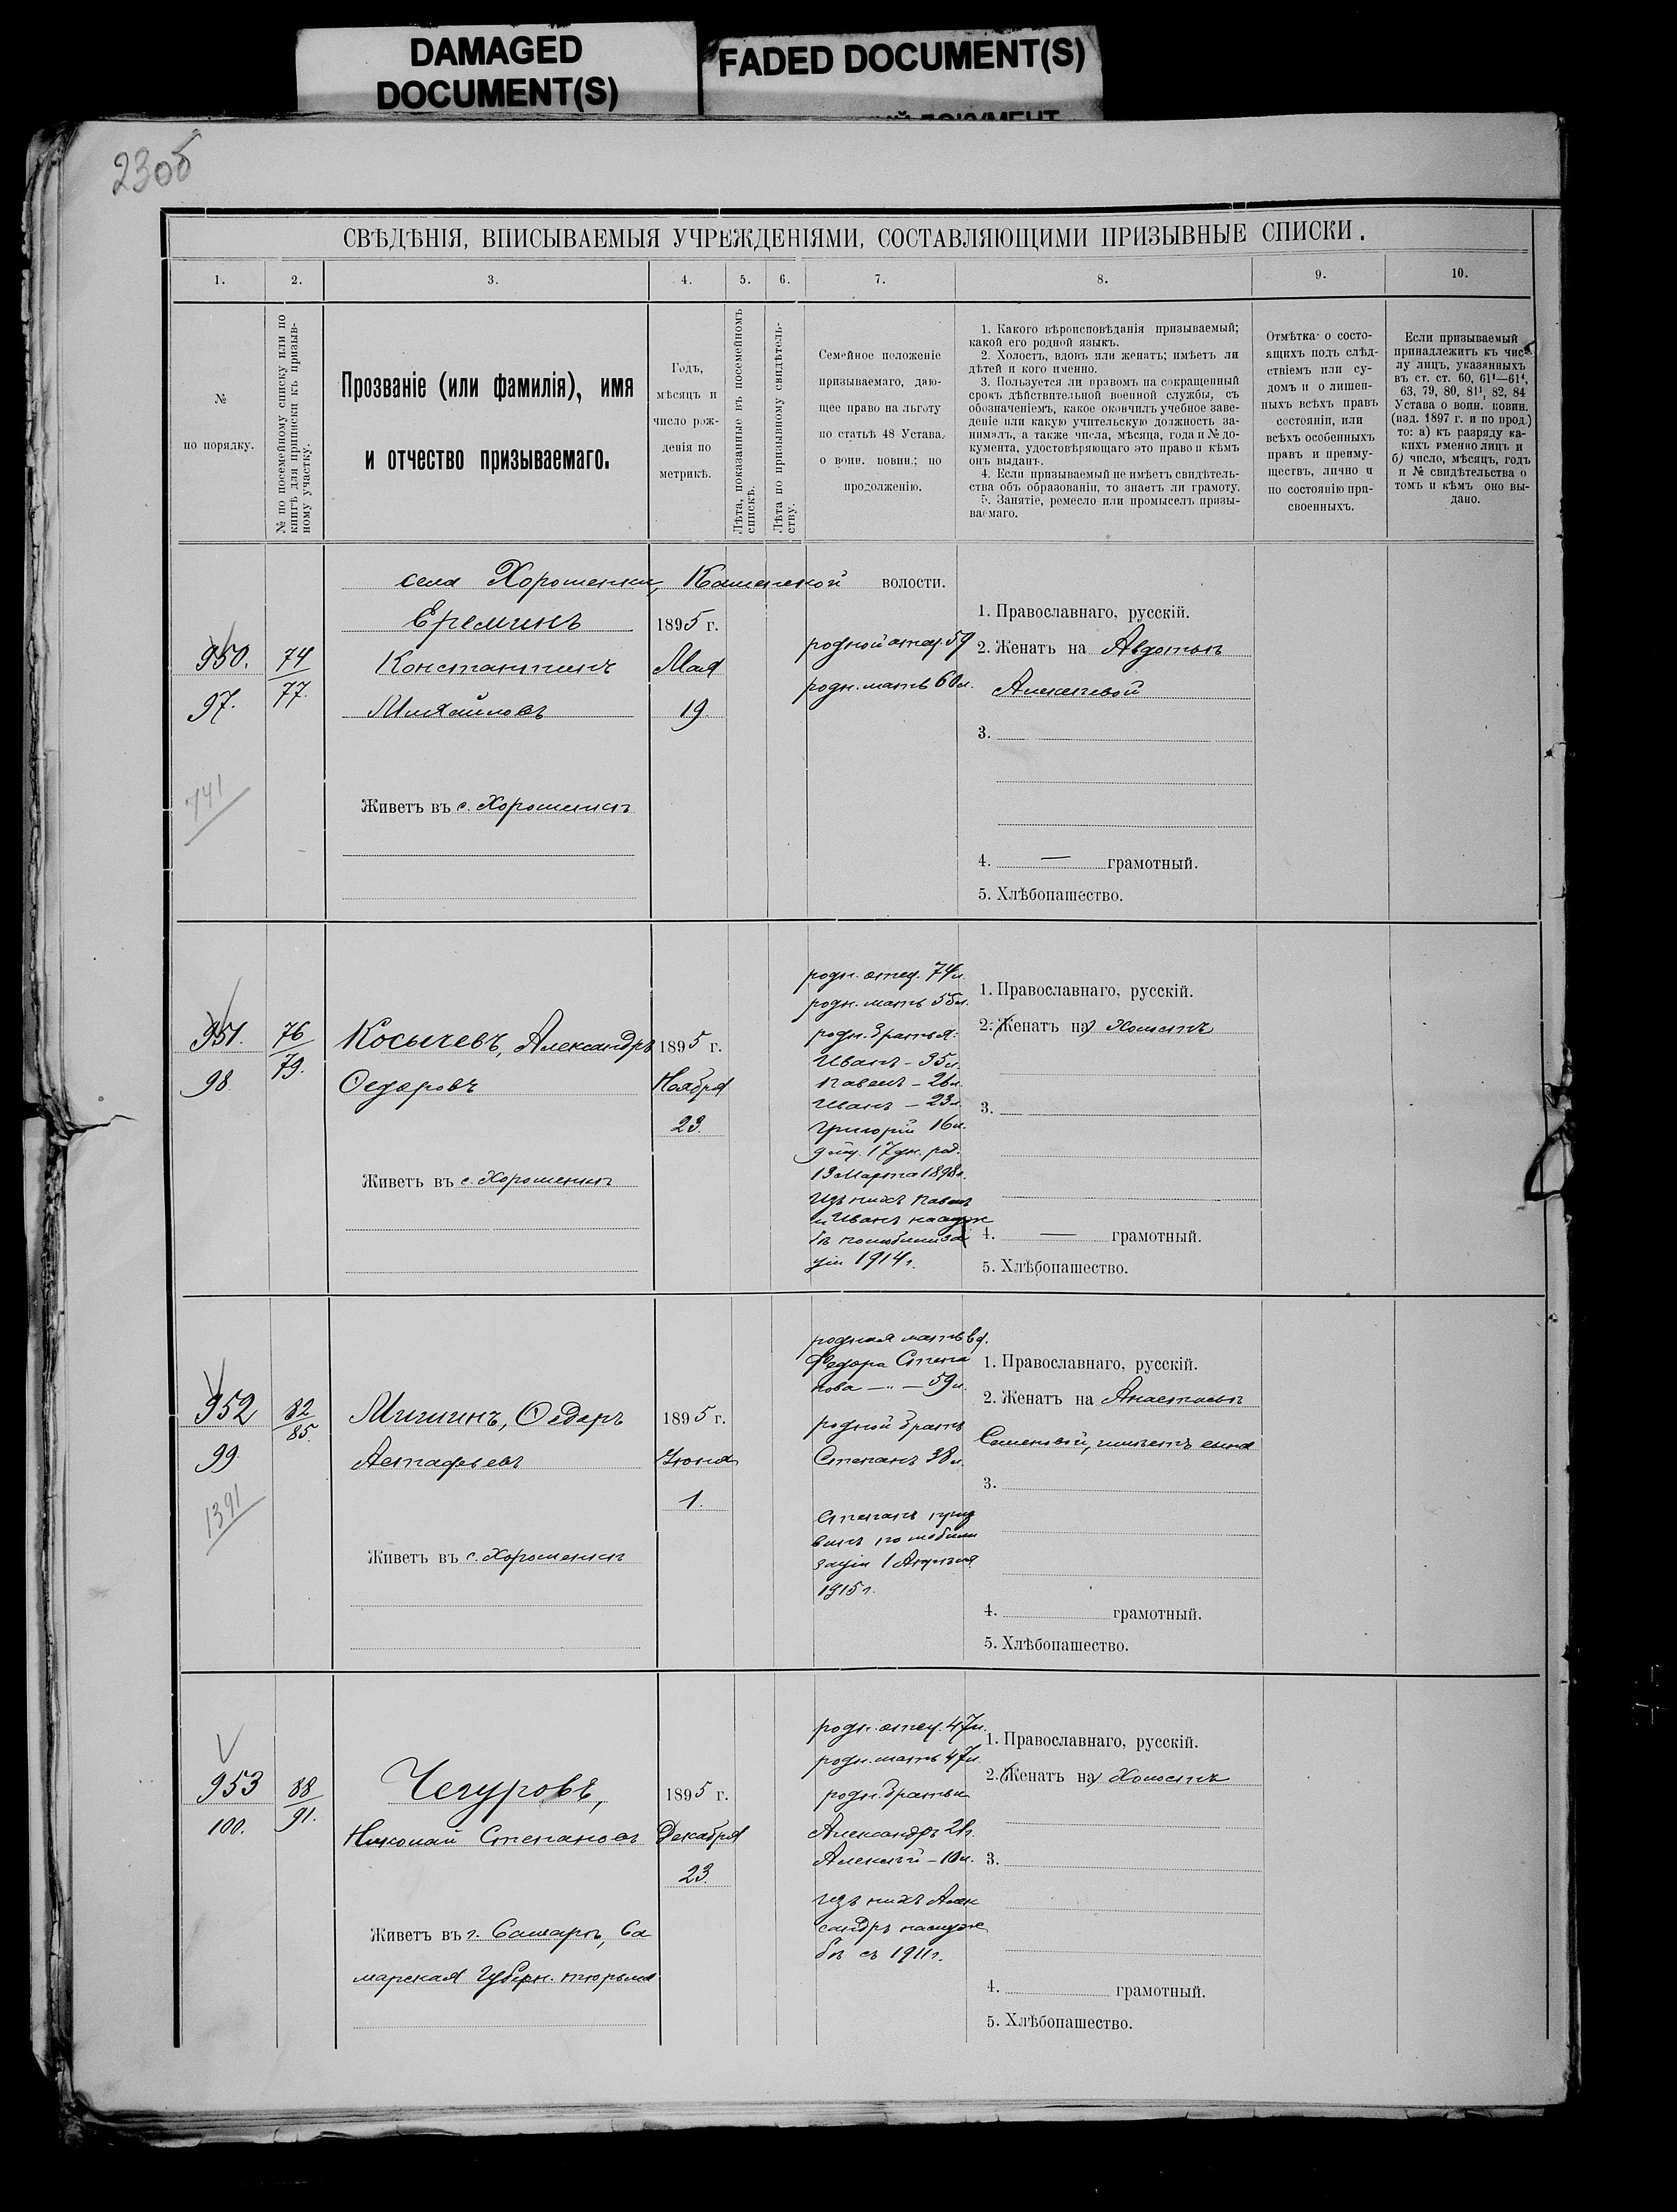 DAMAGED
DOCUMENT(S)
FADED DOCUMENT(S)
230б
СВѢДѢНІЯ, ВПИСЫВАЕМЫЯ УЧРЕЖДЕНІЯМИ, СОСТАВЛЯЮЩИМИ ПРИЗЫВНЫЕ СПИСКИ.
1. 2. 3. 4. 5. 6. 7. 8. 9. 10.
№
по порядку.
№ по посемейному списку или по
книгѣ для приписки къ призыв-
ному участку.
Прозваніе (или фамилія), имя
и отчество призываемаго.
Годъ,
мѣсяцъ и
число рож-
денія по
метрикѣ.
Лѣта, показанные въ посемейномъ
спискѣ.
Лѣта по призывному свидѣтель-
ству.
Семейное положеніе
призываемаго, даю-
щее право на льготу
по статьѣ 48 Устава
о воин. повин.; по
продолженію.
1. Какого вѣроисповѣданія призываемый;
какой его родной языкъ.
2. Холостъ, вдовъ или женатъ; имѣетъ ли
дѣтей и кого именно.
3. Пользуется ли правомъ на сокращенный
срокъ дѣйствительной военной службы, съ
обозначеніемъ, какое окончилъ учебное заве-
деніе или какую учительскую должность за-
нималъ, а также числа, мѣсяца, года и № до-
кумента, удостовѣряющаго это право и кѣмъ
онъ выданъ.
4. Если призываемый не имѣетъ свидѣтель-
ства объ образованіи, то знаетъ ли грамоту.
5. Занятіе, ремесло или промыселъ призы-
ваемаго.
Отмѣтка о состо-
ящихъ подъ слѣд-
ствіемъ или су-
домъ и о лишен-
ныхъ всѣхъ правъ
состоянія, или
всѣхъ особенныхъ
правъ и преиму-
ществъ, лично и
по состоянію при-
своенныхъ.
Если призываемый
принадлежитъ къ чис-
лу лицъ, указанныхъ
въ ст. ст. 60, 61¹—61⁴,
63, 79, 80, 81¹, 82, 84
Устава о воин. повин.
(изд. 1897 г. и по прод.)
то: а) къ разряду ка-
кихъ именно лицъ и
б) число, мѣсяцъ, годъ
и № свидѣтельства о
томъ и кѣмъ оно вы-
дано.
села Хорошенки, Каменской волости.
950.
97.
741
74
77.
Ереминъ
Константинъ
Михайловъ
Живетъ въ с. Хорошенкѣ
1895 г.
Мая
19.
родной отец. 59
родн. мать 60 л.
1. Православнаго, русскій.
2. Женатъ на Авдотьѣ
Алексѣевой
3.
4. — грамотный.
5. Хлѣбопашество.
951.
98.
76
79.
Косычевъ, Александръ
Ѳедоровъ
Живетъ въ с. Хорошенкѣ
1895 г.
Ноября
23.
родн. отец. 74 л.
родн. мать 55 л.
родн. братья:
Иванъ - 35 л.
Павелъ - 26 л.
Иванъ - 23 л.
Григорій 16 л.
9 мѣс. 17 дн. род.
13 Марта 1898 г.
Изъ нихъ Павелъ
и Иванъ на служ
бѣ по мобилиза
ціи 1914 г.
1. Православнаго, русскій.
2. (Женатъ на) Холостъ
3.
4. — грамотный.
5. Хлѣбопашество.
952
99
1391
82
85.
Мишинъ, Ѳедоръ
Астафьевъ
Живетъ въ с. Хорошенкѣ
1895 г.
Іюня
1.
родная мать вд.
Ѳедора Степа
нова — „ — 59 л.
родной братъ
Степанъ 38 л.
Степанъ приз
ванъ по мобили
заціи 1 Апрѣля
1915 г.
1. Православнаго, русскій.
2. Женатъ на Анастасьѣ
Семеновой, имѣетъ сына
3.
4. грамотный.
5. Хлѣбопашество.
953
100.
88
91.
Чегуровъ,
Николай Степановъ
Живетъ въ г. Самарѣ, Са
марская Губерн. тюрьма
1895 г.
Декабря
23.
родн. отец. 47 л.
родн. мать 47 л.
родн. братья
Александръ 21 л.
Алексѣй - 10 л.
изъ нихъ Алек
сандръ на служ
бѣ съ 1911 г.
1. Православнаго, русскій.
2. (Женатъ на) Холостъ
3.
4. грамотный.
5. Хлѣбопашество.